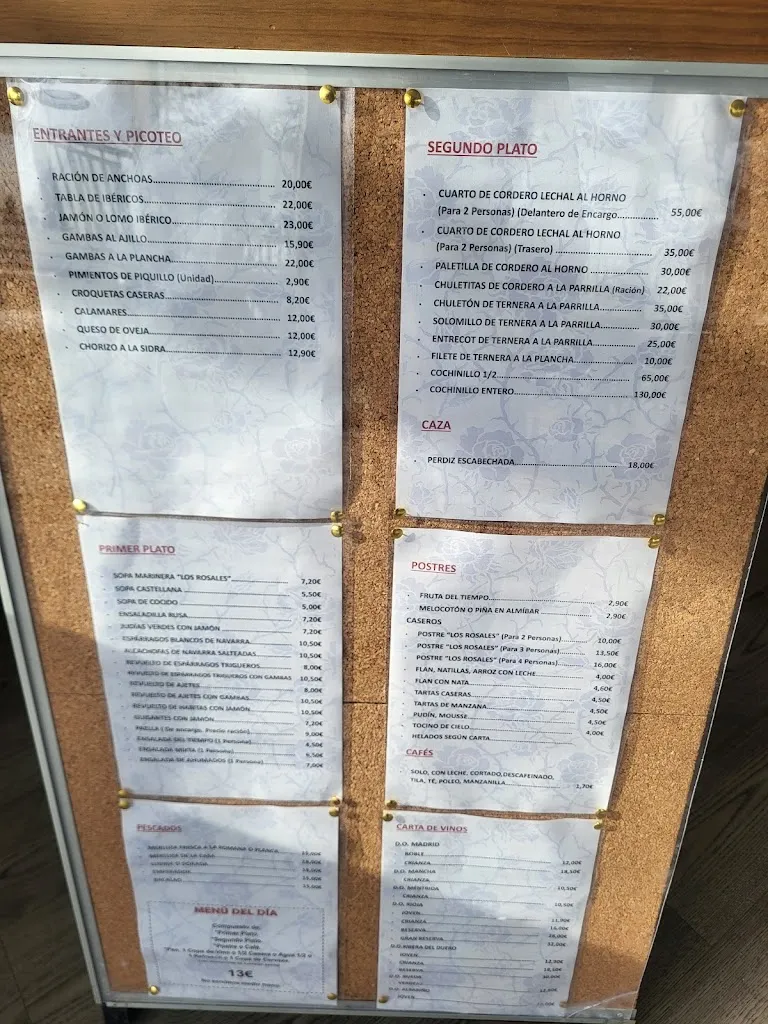 ENTRANTES Y PICOTEO
RACIÓN DE ANCHOAS 20,00€
TABLA DE IBÉRICOS 22,00€
JAMÓN O LOMO IBÉRICO 23,00€
GAMBAS AL AJILLO 15,90€
GAMBAS A LA PLANCHA 22,00€
PIMIENTOS DE PIQUILLO (Unidad) 2,90€
CROQUETAS CASERAS 8,20€
CALAMARES 12,00€
QUESO DE OVEJA 12,00€
CHORIZO A LA SIDRA 12,90€
SEGUNDO PLATO
CUARTO DE CORDERO LECHAL AL HORNO
(Para 2 Personas) (Delantero de Encargo 55,00€
CUARTO DE CORDERO LECHAL AL HORNO
(Para 2 Personas) (Trasero) 35,00€
PALETILLA DE CORDERO AL HORNO 30,00€
CHULETITAS DE CORDERO A LA PARRILLA (Ración) 22,00€
CHULETÓN DE TERNERA A LA PARRILLA 35,00€
SOLOMILLO DE TERNERA A LA PARRILLA 30,00€
ENTRECOT DE TERNERA A LA PARRILLA 25,00€
FILETE DE TERNERA A LA PLANCHA 10,00€
COCHINILLO 1/2 65,00€
COCHINILLO ENTERO 130,00€
CAZA
PERDIZ ESCABECHADA 18,00€
PRIMER PLATO
SOPA MARINERA "LOS ROSALES" 7,20€
SOPA CASTELLANA 5,50€
SOPA DE COCIDO 5,00€
ENSALADILLA RUSA 7,20€
JUDÍAS VERDES CON JAMÓN 7,20€
ESPÁRRAGOS BLANCOS DE NAVARRA 10,50€
ALCACHOFAS DE NAVARRA SALTEADAS 10,50€
REVUELTO DE ESPÁRRAGOS TRIGUEROS 8,00€
REVUELTO DE ESPÁRRAGOS TRIGUEROS CON GAMBAS 10,50€
REVUELTO DE AJETES 8,00€
REVUELTO DE AJETES CON GAMBAS 10,50€
REVUELTO DE HABITAS CON JAMÓN 10,50€
GUISANTES CON JAMÓN 7,20€
PAELLA ( De encargo. Precio ración) 9,00€
ENSALADA DEL TIEMPO (1 Persona) 4,50€
ENSALADA MIXTA (1 Persona) 6,50€
ENSALADA DE AHUMADOS (1 Persona) 7,00€
POSTRES
FRUTA DEL TIEMPO 2,90€
MELOCOTÓN O PIÑA EN ALMÍBAR 2,90€
CASEROS
POSTRE "LOS ROSALES" (Para 2 Personas) 10,00€
POSTRE "LOS ROSALES" (Para 3 Personas) 13,50€
POSTRE "LOS ROSALES" (Para 4 Personas) 16,00€
FLAN, NATILLAS, ARROZ CON LECHE 4,00€
FLAN CON NATA 4,60€
TARTAS CASERAS 4,50€
TARTAS DE MANZANA 4,50€
PUDÍN, MOUSSE 4,50€
TOCINO DE CIELO 4,00€
HELADOS SEGÚN CARTA
CAFÉS
SOLO, CON LECHE, CORTADO,DESCAFEINADO,
TILA, TÉ, POLEO, MANZANILLA 1,70€
PESCADOS
MERLUZA FRESCA A LA ROMANA O PLANCHA
LUBINA O DORADA
EMPERADOR
BACALAO
MENÚ DEL DÍA
Compuesto de:
*Primer Plato.
*Segundo Plato.
*Postre o Café.
13€
CARTA DE VINOS
D.O. MADRID
ROBLE 12,00€
CRIANZA 18,50€
D.O. MANCHA
CRIANZA 10,50€
D.O. MENTRIDA
CRIANZA 10,50€
D.O. RIOJA
JOVEN 11,90€
CRIANZA
RESERVA
GRAN RESERVA
D.O. RIBERA DEL DUERO
JOVEN
CRIANZA
RESERVA
D.O. RUEDA
VERDEJO
JOVEN